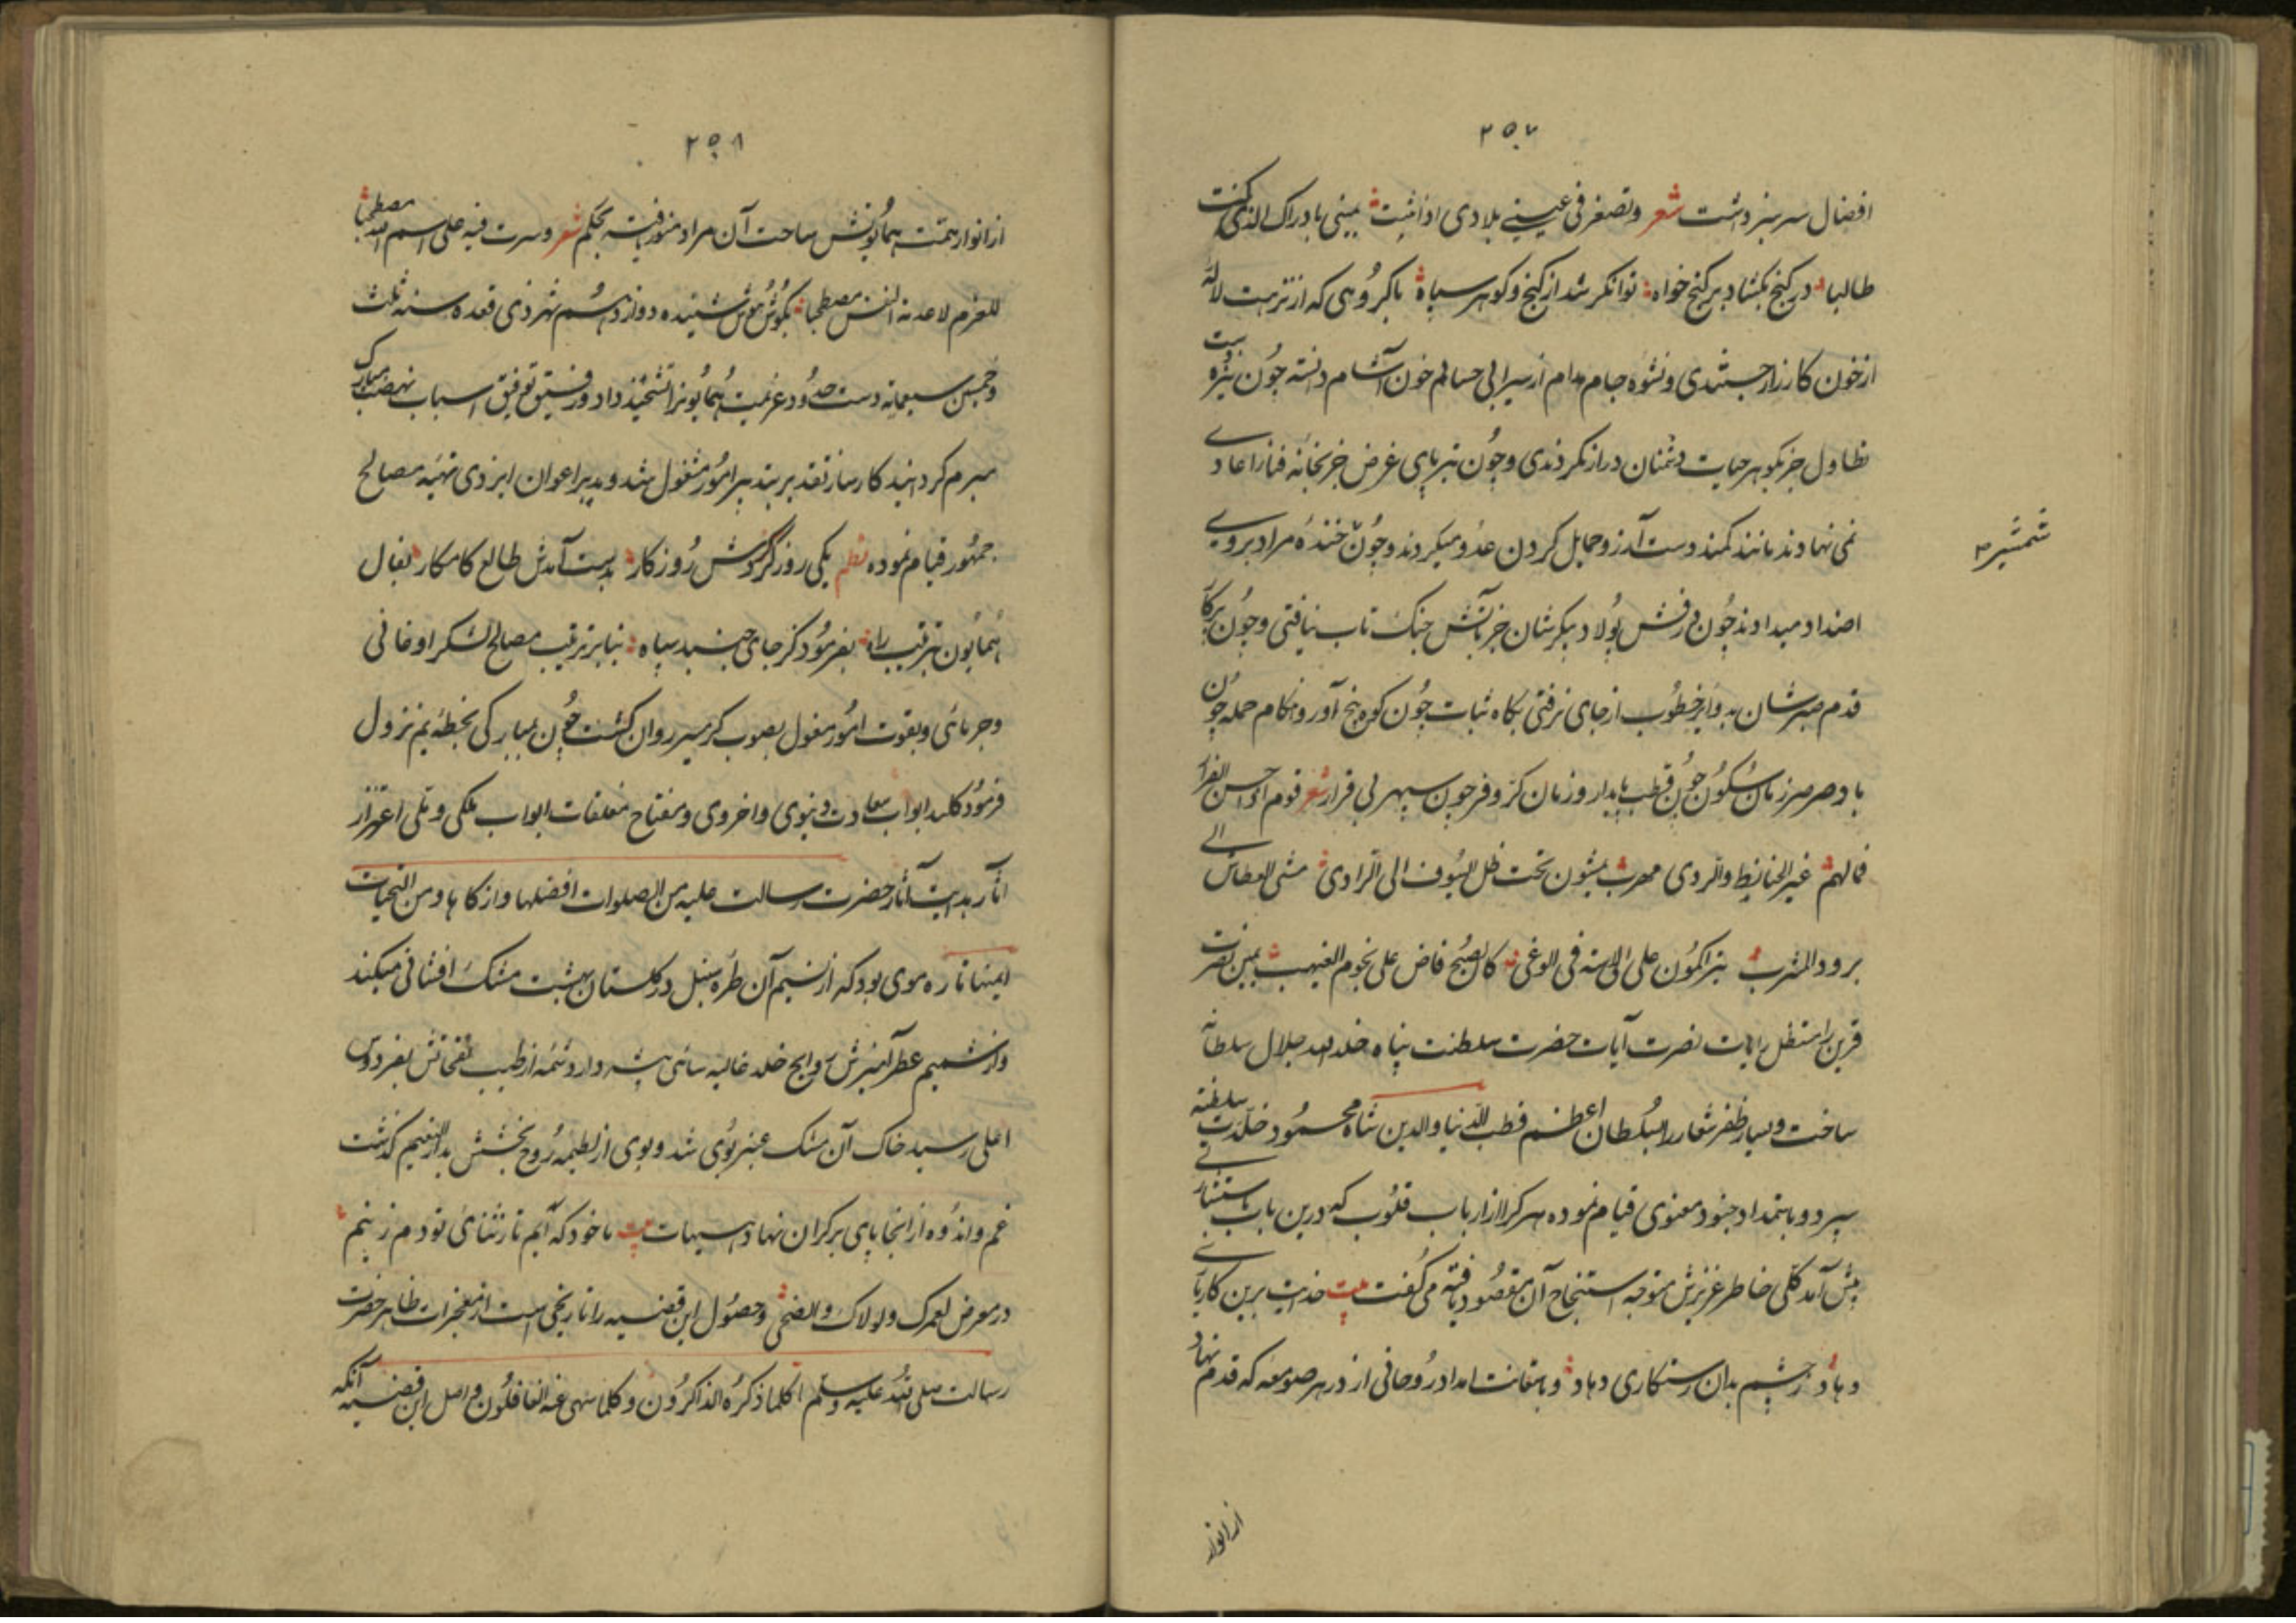 ٢٥٧
افضال سرسبز دشت شعر وتصغر فی عینی بلادی اذا انثنت یمینی بادراک الذی کنت
طالبا در گنج بکشاد بر گنج خواه توانکر شد از گنج وگوهر سپاه باگروهی که از نزهت لاله
از خون کارزار جستندی ونشوه جام مدام از سیرابی حسام خون آشام دانسته چون نیزه بیت
تطاول جز بگوهر حیات دشمنان دراز نکردندی وچون تیر پای غرض جز بخانه فنا از اعادی
نمی نهادند مانند کمند دست آرزو حمایل کردن عدو میکردند وچون خنده مراد بروی
شمشیر
اضداد میدادند چون درفش پولاد پیکرشان جز بآتش جنک تاب نیافتی وچون پرکار
قدم صبرشان بدوایر خطوب از جای نرفتی بکاه ثبات چون کوه بیخ آور وهنکام حمله چون
باد صرصر زمان سکون چون قطب پایدار وزمان کر وفر چون سپهر بی قرار شعر قوم اذا حسن الفرار
فمالهم غیر الحفایظ والردی مهرب یمشون تحت ظل السیوف الی الردی مشی العطاش الی
برود المشرب یتراکمون علی الاسنه فی الوغی کالصبح فاض علی نجوم الغیهب یمین نصرت
قرین را مستظل رایات نصرت آیات حضرت سلطنت پناه خلد الله جلال سلطانه
ساخت ویسار ظفر شعار را بسلطان اعظم قطب الدنیا والدین شاه محمود خلدت سلطنته
سپرد وباستمداد جنود معنوی قیام نموده هر کرا از ارباب قلوب که درین باب باستشاری
پیش آمد کلی خاطر عزیزش متوجه استنجاح آن مقصود یافته می گفت بیت خدایت برین کار یاری
دهاد ز چشم بدان رستکاری دهاد وباستعانت امداد روحانی از در هر صومعه که قدم نهاد
از انوار
٢٥٨
از انوار همت همایونش ساحت آن مراد منور یافت بحکم شعر وسرت فیه علی اسم الله مصطحبا
للعزم لاعدمته النفس مصطحبا بگوش هوش شنیده دوازدهم شهر ذی قعده سنه ثلث
وخمسین سبعمایه دست حدود عزیمت همایونرا تشحیذ داد ورفیق توفیق اسباب نهضت مبارک
مبرم گردانید کارساز تقدیر بتدبیر امور مشغول شد وبدیر اعوان ایزدی تهیه مصالح
جمهور قیام نموده نظم یکی روز کز گردش روزکار بدست آمدش طالع کامکار بفال
همایون بترتیب راه بفرمود کز جای جنبد سپاه بنابر ترتیب مصالح لشکر اوغانی
وجرمائی وبقوت امور مغول بصوب کرمسیر روان گشت چون بمبارکی بخطه بم نزول
فرمود کلید ابواب سعادت دنیوی واخروی ومفتاح مغلقات ابواب ملکی وملی اعزاز
آثار بدایت آثار حضرت رسالت علیه من الصلوات افضلها وازکاها ومن التحیات
ایمنها تاره موی بود که از نسیم آن طره سنبل در گلستان بهشت مشک افشانی میکند
واز شمیم عطر آمیزش روایح خلد غالیه سائی پیشه دارد شمه از طیب نفحاتش بفردوس
اعلی رسید خاک آن مشک عنبر بوی شد وبوی از لطیمه روح بخشش بدار النعیم گذشت
غم واندوه از آنجا پای برکران نهاد هیهات بیت ما خود که آیم تا ز ثنای تو دم زنیم
در معرض لعمرک ولولاک والضحی وحصول این قضیه را تاریخی است از معجزات ظاهر حضرت
رسالت صلی الله علیه وسلم کلما ذکره الذاکرون وکلما سهی عنه الغافلون واصل این قضیه آنکه